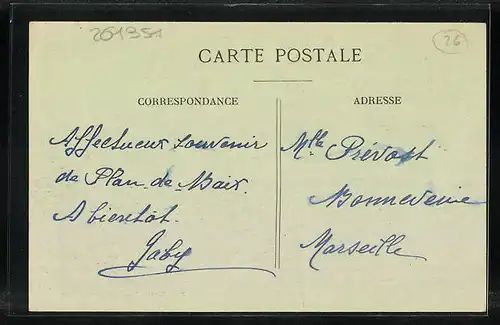 261351
26
CARTE POSTALE
CORRESPONDANCE
ADRESSE
Affectueux souvenir
de Plan de Baix.
A bientôt.
Gaby
Mlle Prévost
Bonneveine
Marseille